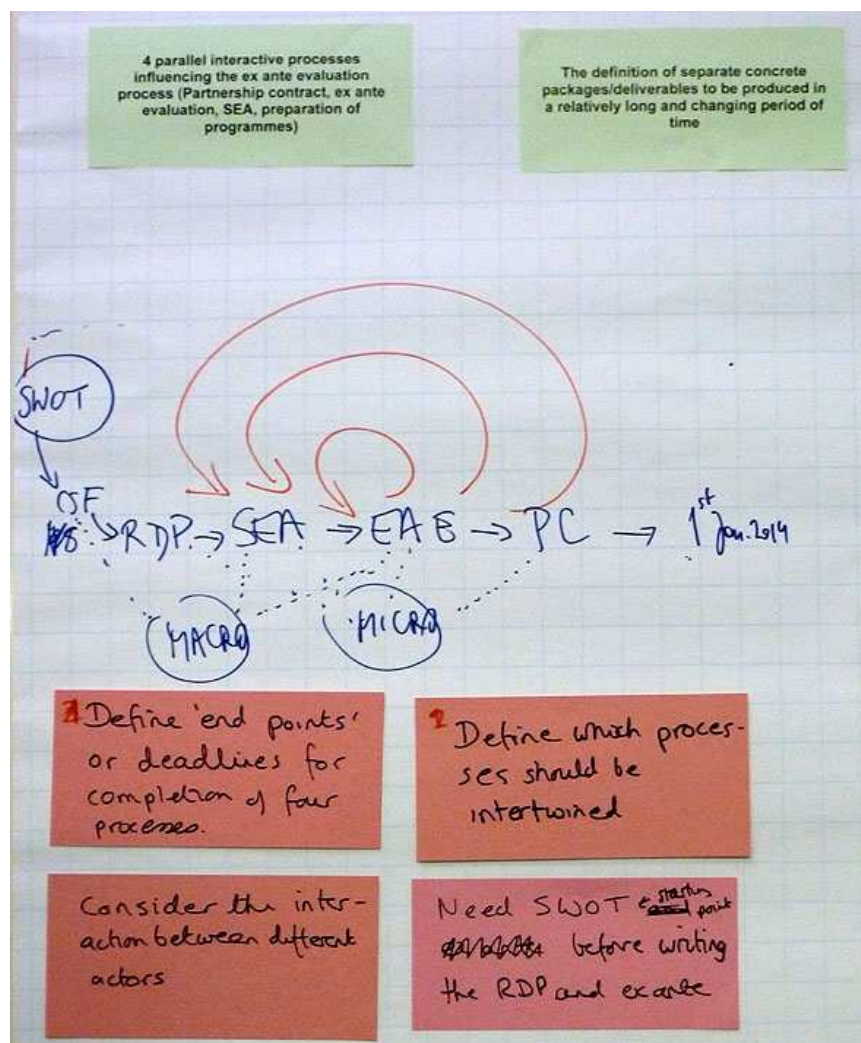 4 parallel interactive processes
influencing the ex ante evaluation
process (Partnership contract, ex ante
evaluation, SEA, preparation of
programmes)
The definition of separate concrete
packages/deliverables to be produced in
a relatively long and changing period of
time
SWOT
RDP → SEA → EAE → PC → 1st Jan. 2014
MACRO
MICRO
Define 'end points'
or deadlines for
completion of four
processes.
Define which proces-
ses should be
intertwined
Consider the inter-
action between different
actors
Need SWOT starting point
before writing
the RDP and ex ante